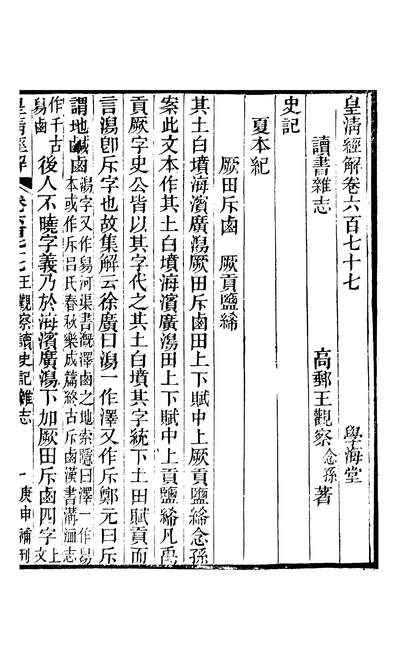 皇清經解卷六百七十七
學海堂
讀書雜志
高郵王觀察念孫著
史記
夏本紀
厥田斥鹵　厥貢鹽絺
其土白墳海濱廣潟厥田斥鹵田上下賦中上厥貢鹽絺念孫
案此文本作其土白墳海濱廣潟田上下賦中上貢鹽絺凡禹
貢厥字史公皆以其字代之其土白墳其字統下土田賦貢而
言潟卽斥字也故集解云徐廣曰潟一作澤又作斥鄭元曰斥
謂地鹹鹵潟字又作舄河渠書溉澤鹵之地索隱曰澤一作舄
本或作斥呂氏春秋樂成篇終古斥鹵漢書溝洫志
作千古
舄鹵後人不曉字義乃於海濱廣潟下加厥田斥鹵四字文上
皇清經解
卷六百七十七王觀察讀史記雜志
一
庚申補刊